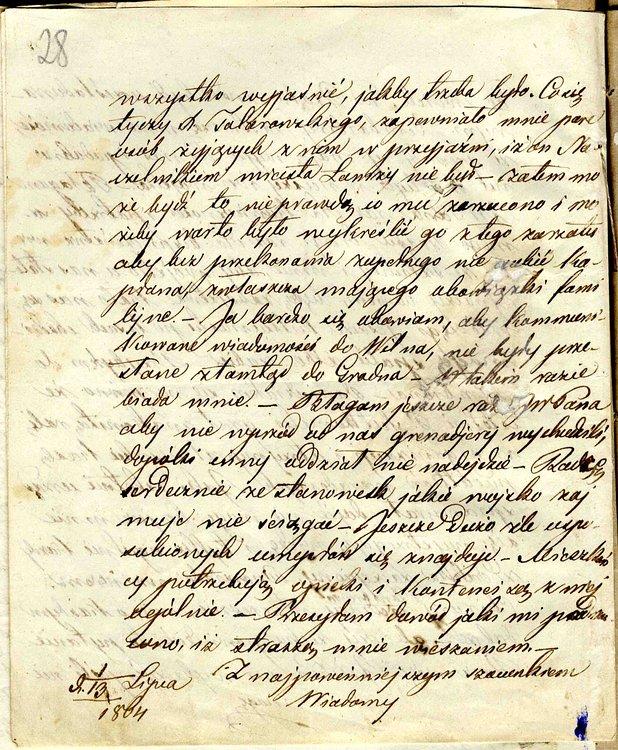 28
wszystko wyjaśnić, jakby trzeba było. Co się
tyczy X. Tatarowskiego, zapewniało mnie parę
osób żyjących z nim w przyjaźni, iż on Na-
czelnikiem miasta Łomży nie był – zatem mo
że być to nieprawdą co mu zarzucono i mo
żeby warto było wykreślić go z tego zarzutu
aby bez przekonania zupełnego nie gubić Ka-
płana zwłaszcza mającego obowiązki fami
lijne. – Ja bardzo się obawiam, aby kommuni-
kowane wiadomości do Wilna, nie były prze-
słane ztamtąd do Grodna – W takim razie
biada mnie. – Błagam jeszcze raz JW Pana
aby nie wprzód od nas grenadjery wychodzili,
dopóki inny oddział nie nadejdzie – Radzę
serdecznie ze stanowisk jakie wojsko zaj
muje nie ściągać – Jeszcze dużo źle uspo-
sobionych umysłów się znajduje – Mieszkań
cy potrzebują opieki i kontenci są z niej
ogólnie. – Przesyłam dowód jaki mi
iż straszą mnie wieszaniem –
Z najpowinniejszym szacunkiem
Wiadomy
d. 1/13 Lipca
1864